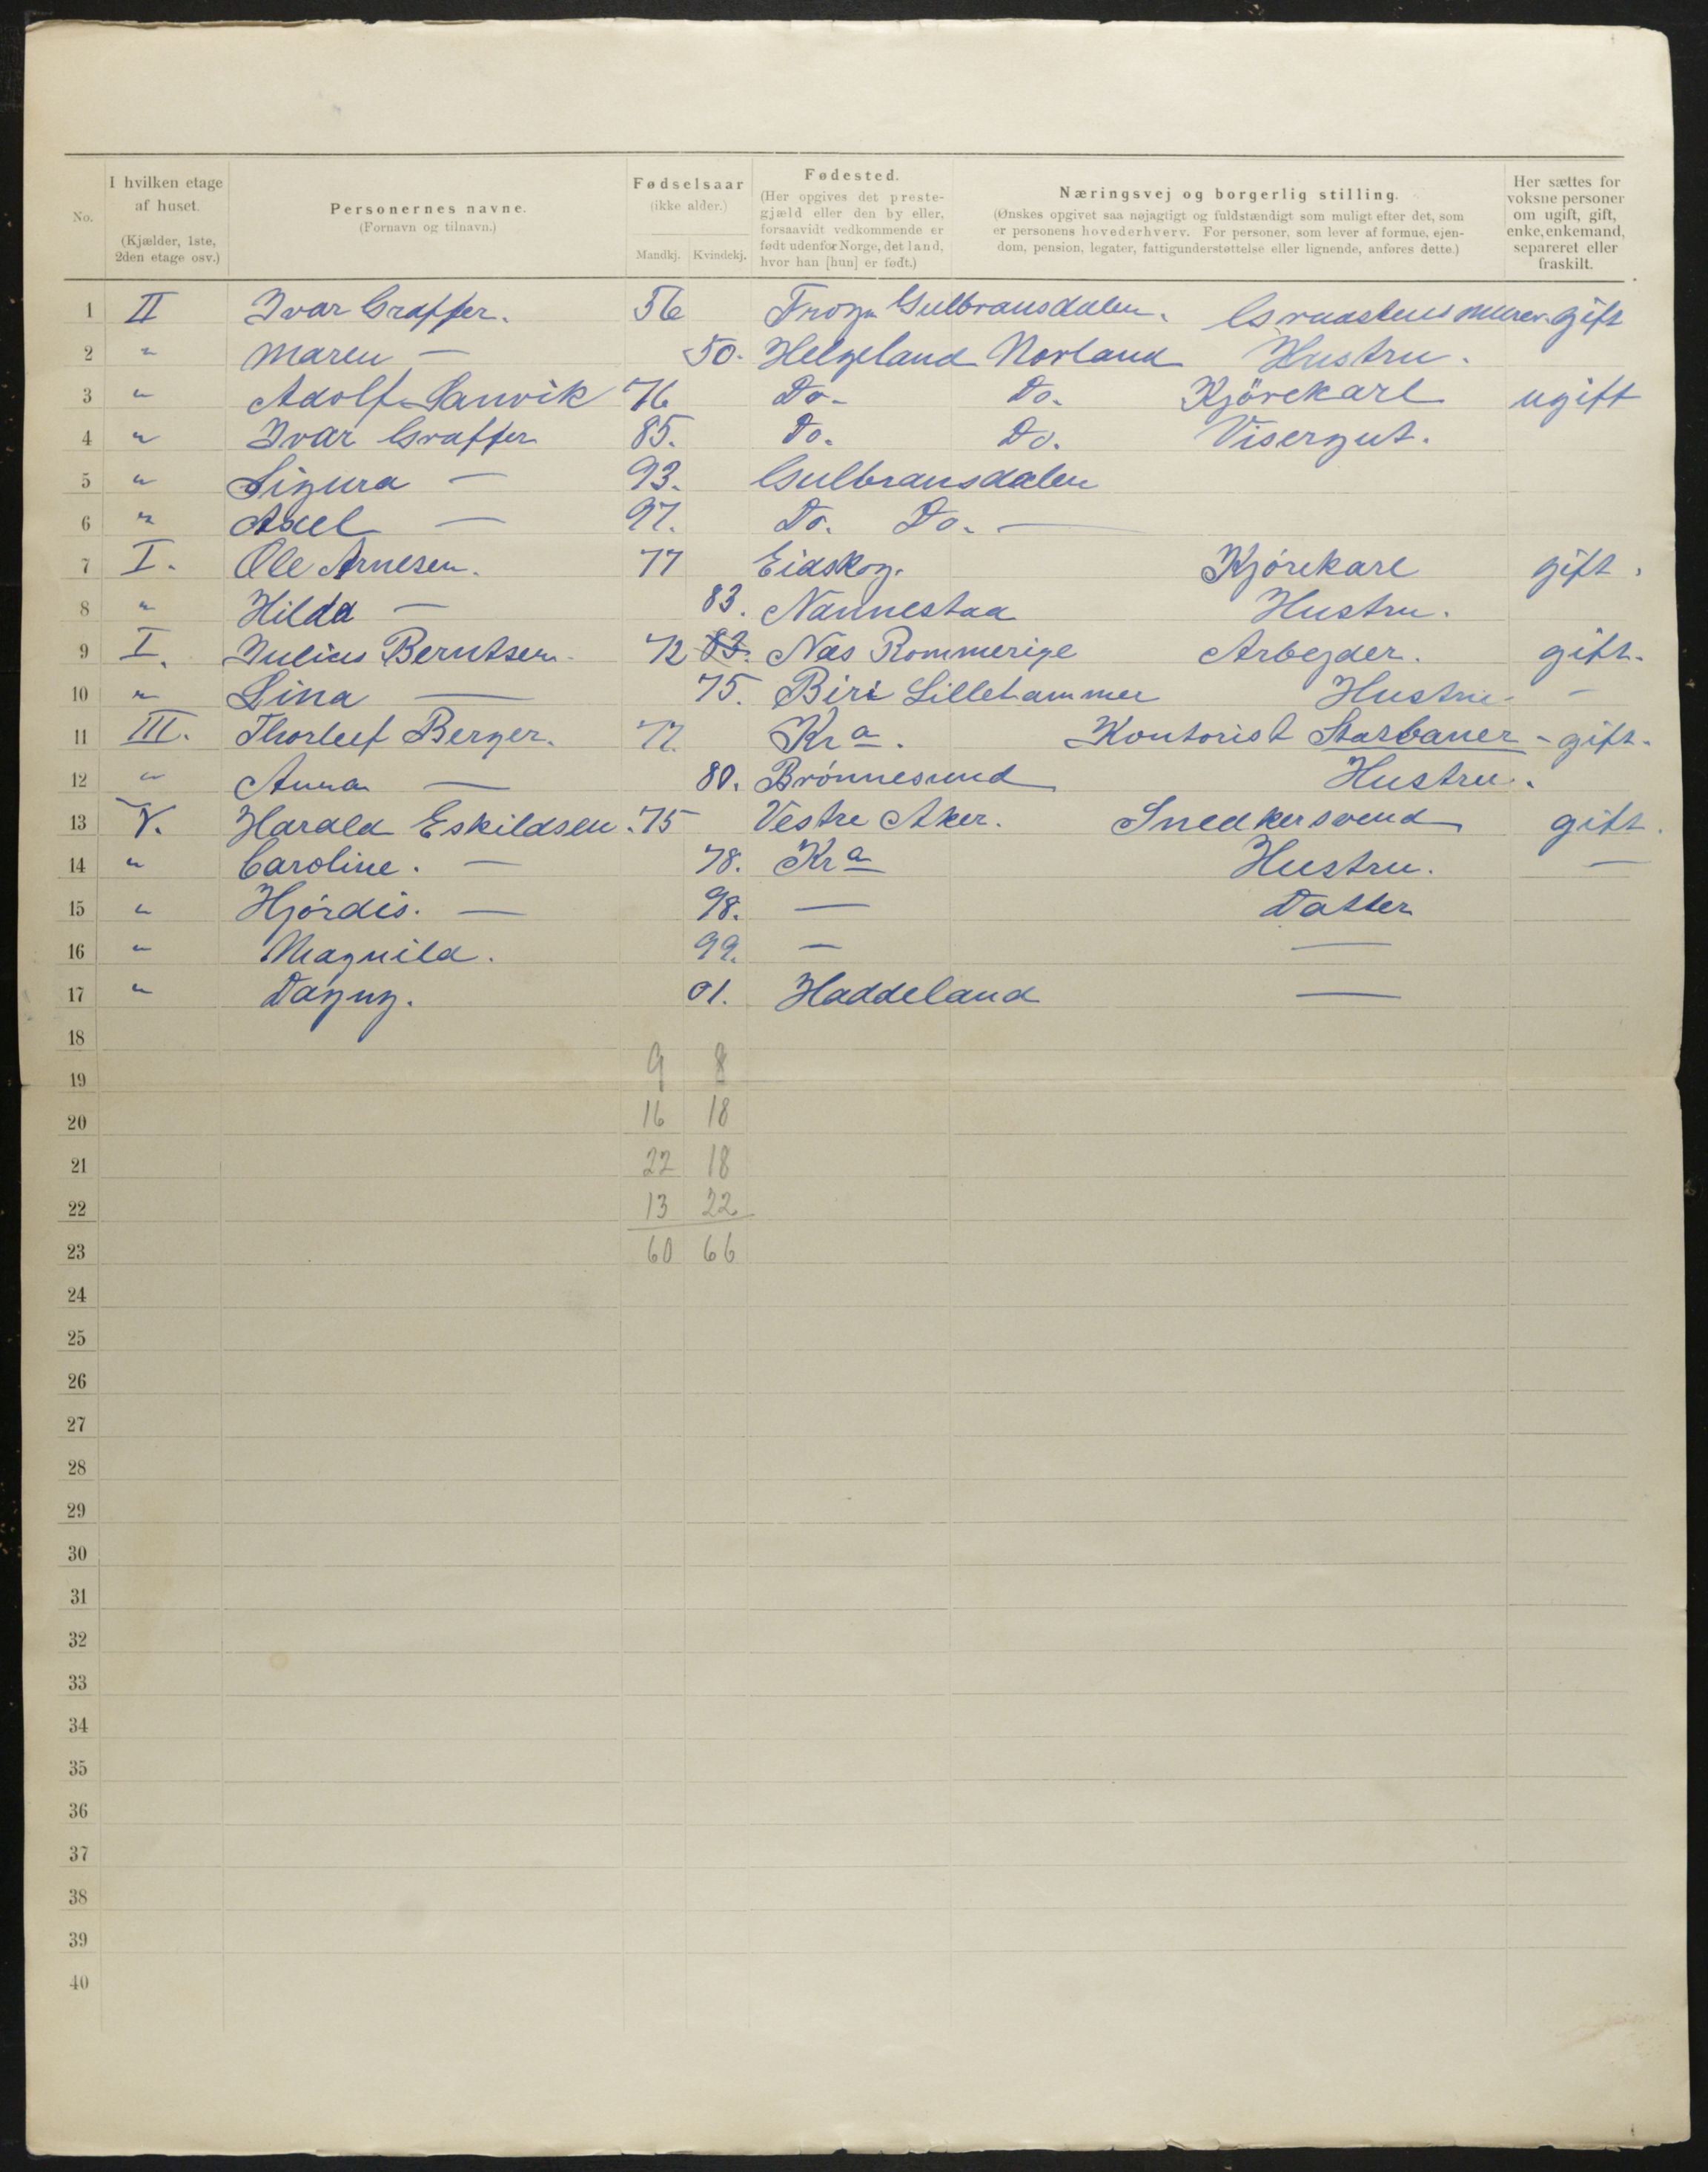 No. | I hvilken etage af huset. (Kjælder, 1ste, 2den etage osv.) | Personernes navne. (Fornavn og tilnavn.) | Fødselsaar (ikke alder.) Mandkj. Kvindekj. | Fødested. (Her opgives det prestegjæld eller den by eller, forsaavidt vedkommende er født udenfor Norge, det land, hvor han [hun] er født.) | Næringsvej og borgerlig stilling. (Ønskes opgivet saa nøjagtigt og fuldstændigt som muligt efter det, som er personens hovederhverv. For personer, som lever af formue, ejendom, pension, legater, fattigunderstøttelse eller lignende, anføres dette.) | Her sættes for voksne personer om ugift, gift, enke, enkemand, separeret eller fraskilt.
1 II Ivar Graffer. 56 Gulbransdalen. gift
2 " Maren — 50. Helgeland Norland Hustru.
3 " Adolf Sanvik 76 Do- Do. Kjörekarl ugift
4 " Ivar Graffer 85. Do. Do. Visergut.
5 " Sigurd — 93. Gulbransdalen
6 " Axel — 97. Do. Do. —
7 I. Ole Arnesen. 77 Eidskog. Kjörekarl gift.
8 " Hilda — 83. Nannestad Hustru.
9 I. Julius Berntsen. 72 83. Næs Rommerige Arbejder. gift.
10 " Lina — 75. Biri Lillehammer Hustru. —
11 III. Thorleif Berger. 77. Kra. Kontorist Starbaner - gift.
12 " Anna — 80. Brönnesund Hustru.
13 V. Harald Eskildsen. 75 Vestre Aker. Snedkersvend gift.
14 " Caroline. — 78. Kra Hustru. —
15 " Hjördis. — 98. — Datter
16 " Magnild. 99. — —
17 " Dagny. 01. Haddeland —
18
9 8
19
16 18
20
22 18
21
13 22
22
60 66
23
24
25
26
27
28
29
30
31
32
33
34
35
36
37
38
39
40